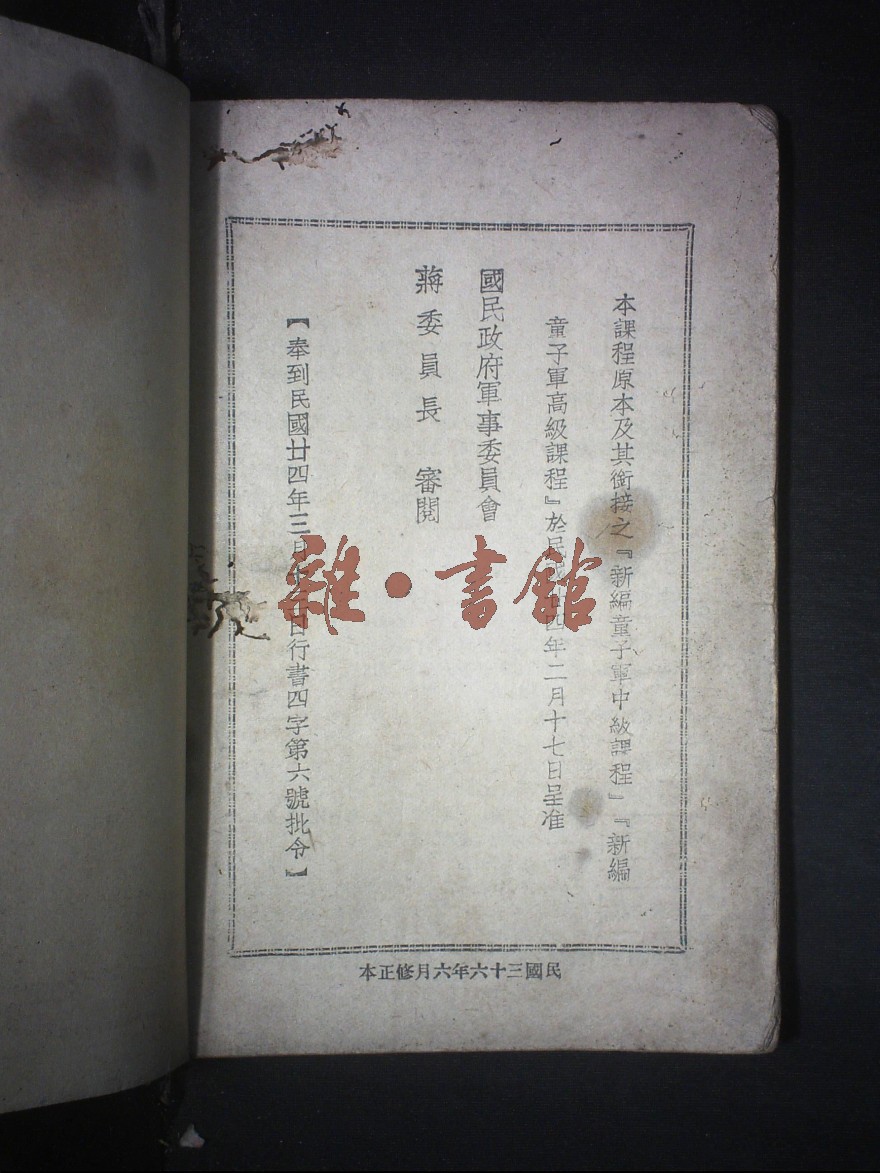 本課程原本及其銜接之『新編童子軍中級課程』『新編
童子軍高級課程』於民國廿四年二月十七日呈准
國民政府軍事委員會
蔣委員長　審閱
【奉到民國廿四年三月 日行書四字第六號批令】
民國三十六年六月修正本
雜·書館